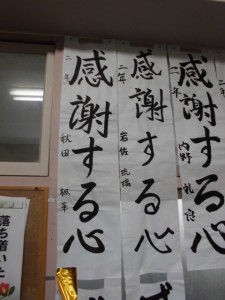 感謝する心
二年
内野
感謝する心
二年
岩佐
感謝する心
二年
秋田
落ち着いた